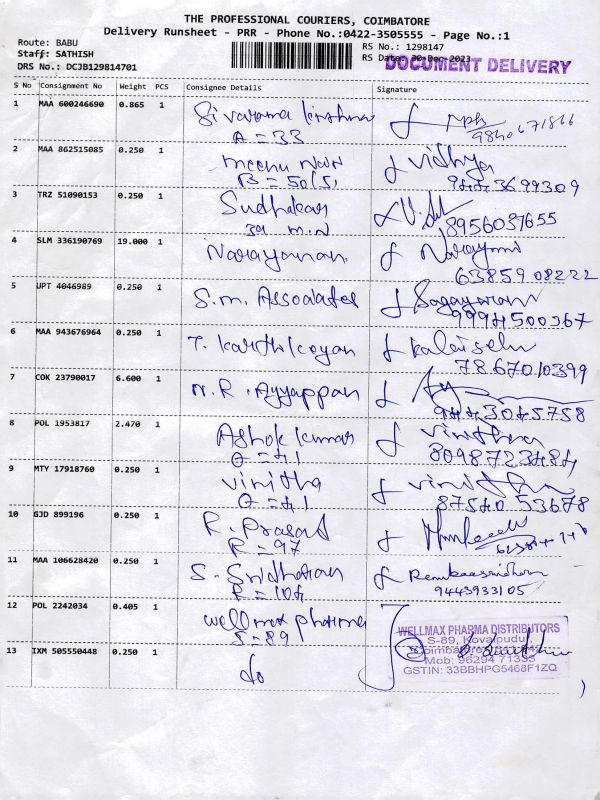 THE PROFESSIONAL COURIERS, COIMBATORE
Delivery Runsheet - PRR - Phone No.:0422-3505555 - Page No.:1
Route: BABU
Staff: SATHISH
DRS No.: DCJB129814701
RS No.: 1298147
RS Date: 30-Dec-2023
DOCUMENT DELIVERY
S No Consignment No Weight PCS Consignee Details Signature
1 MAA 600246690 0.865 1
A = 33
2 MAA 862515085 0.250 1 Vidhya
3 TRZ 51090153 0.250 1 Sudhakar
39 M.N 8956037655
4 SLM 336190769 19.000 1 Narayanan
63859 08222
5 UPT 4046989 0.250 1 S.M. Associates
9994500367
6 MAA 943676964 0.250 1 T. Karthikeyan Kalaiselvi
78.67010399
7 COK 23790017 6.600 1 N.R. Ayyappan
9443045758
8 POL 1953817 2.470 1 Ashok Kumar Vinitha
8098723484
9 MTY 17918760 0.250 1 Vinitha Vinitha
87540 53678
10 GJD 899196 0.250 1 R. Prasad
R = 97
11 MAA 106628420 0.250 1 S. Sridharan
R = 104 9443933105
12 POL 2242034 0.405 1 Wellmax Pharma
S-89
WELLMAX PHARMA DISTRIBUTORS
S-89, Kovaipudur
Mob: 96294 71335
GSTIN: 33BBHPG5468F1ZQ
13 IXM 505550448 0.250 1 do